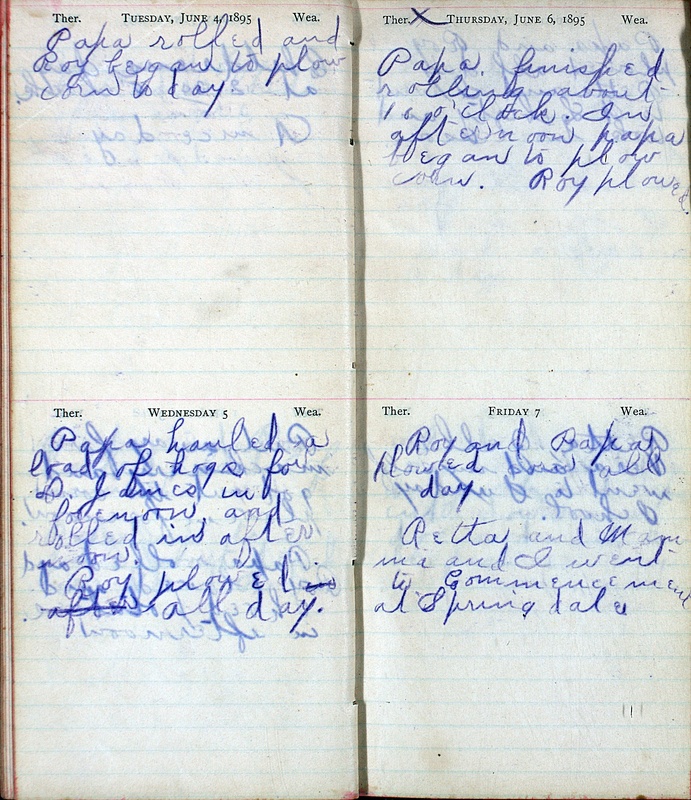 Ther. TUESDAY, JUNE 4, 1895 Wea.
Papa rolled and
Roy began to plow
corn to day
Ther. WEDNESDAY 5 Wea.
Papa hauled a
load of hogs for
D. James in
forenoon and
rolled in after
noon.
Roy plowed in
after all day.
Ther. X THURSDAY, JUNE 6, 1895 Wea.
Papa finished
rolling about
10 o'clock. In
afternoon papa
began to plow
corn. Roy plowed.
Ther. FRIDAY 7 Wea.
Roy and Papa
plowed all
day
Retta and Mam
ma and I went
to Commencement
at Springdale